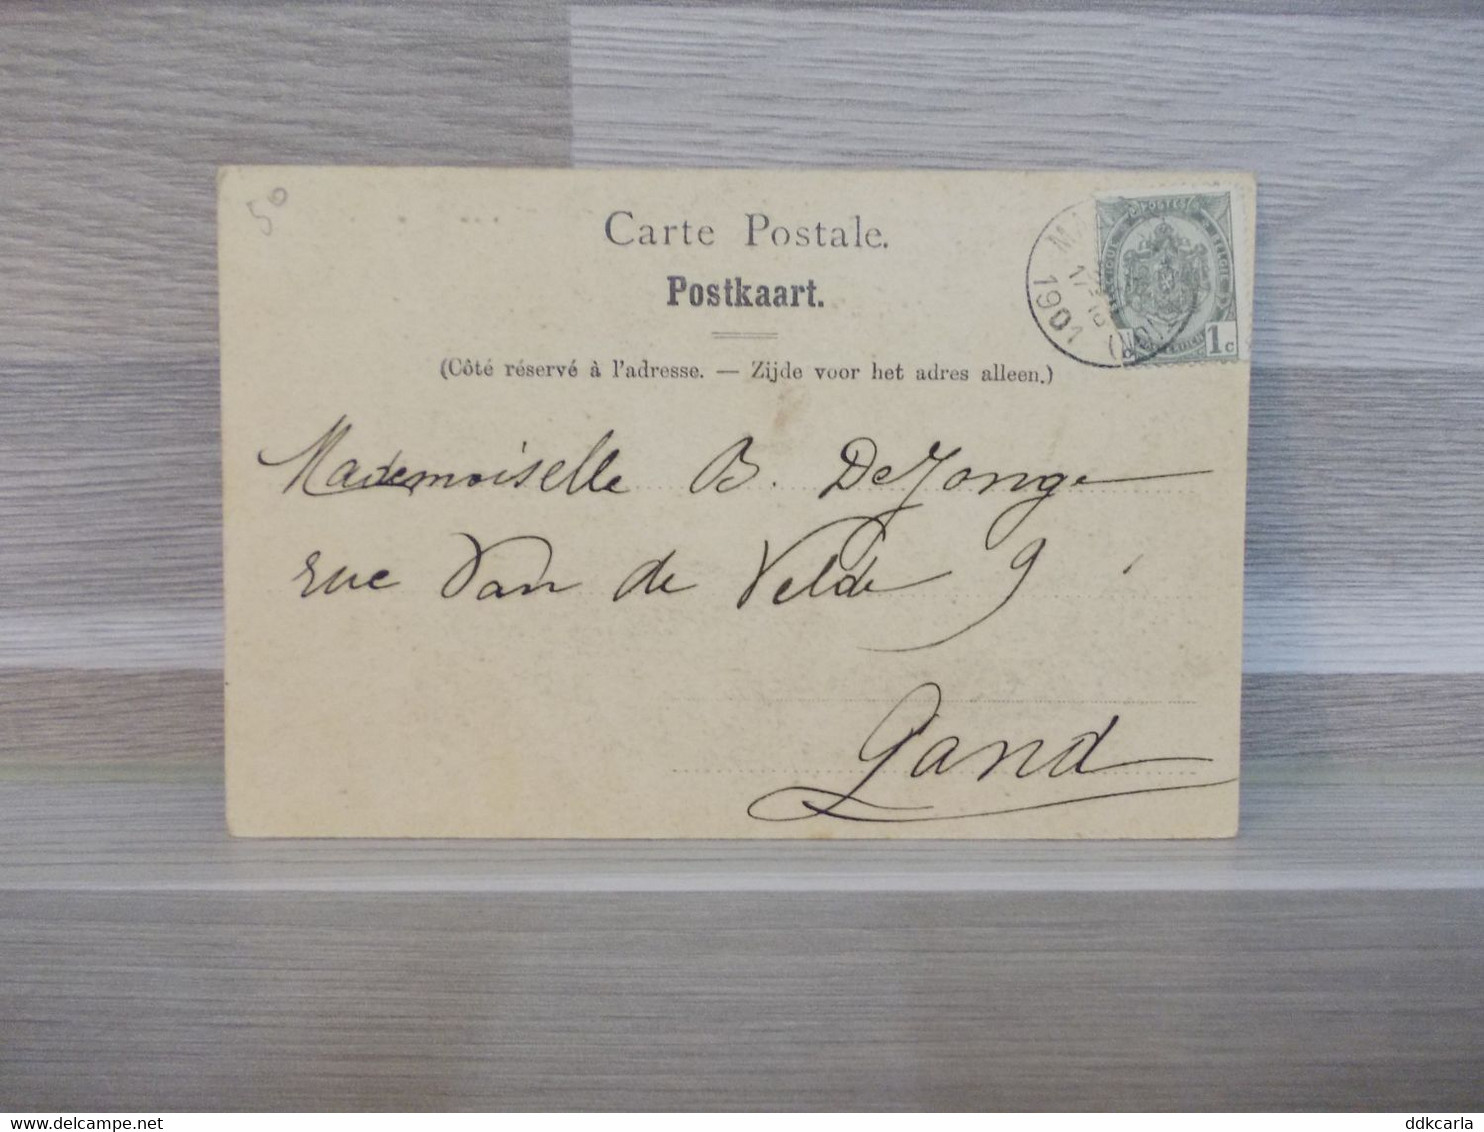 5⁰
Carte Postale.
Postkaart.
(Côté réservé à l'adresse. — Zijde voor het adres alleen.)
POSTES
BELGIE
1c
1901
Mademoiselle B. De Jonge
rue Van de Velde 9
Gand
ddkcarla